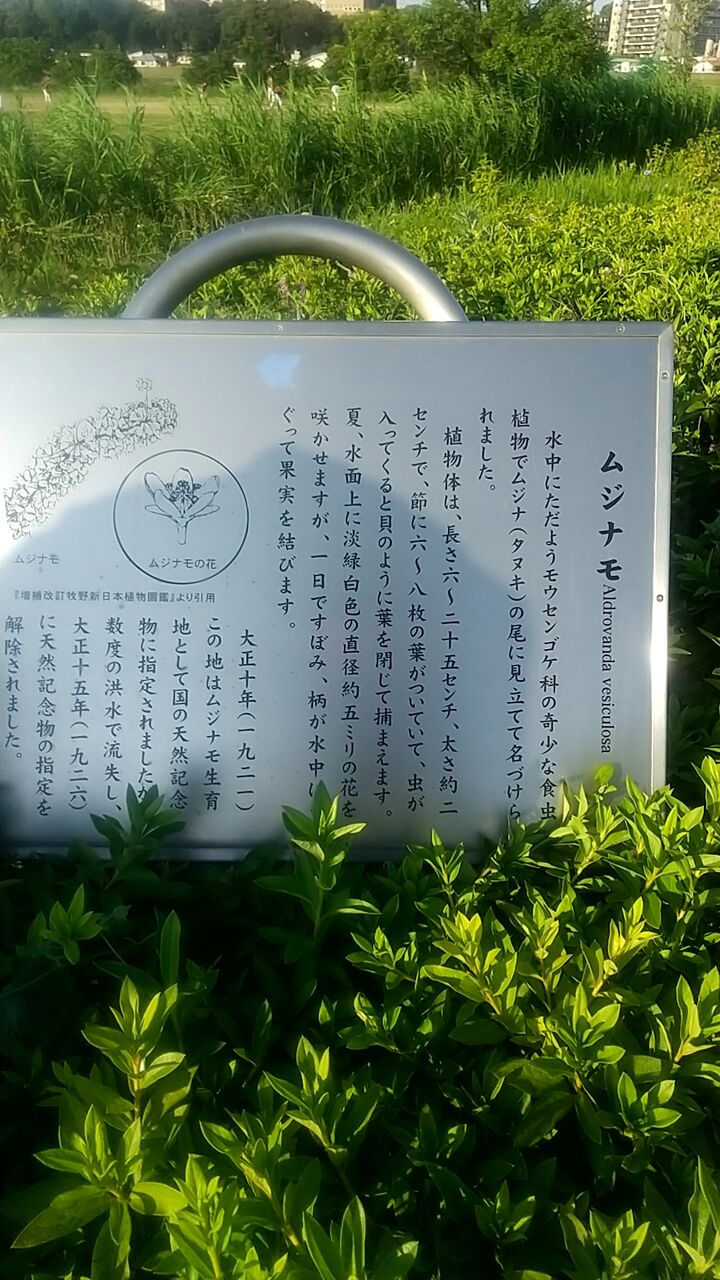 ムジナモ Aldrovanda vesiculosa
水中にただようモウセンゴケ科の奇少な食虫
植物でムジナ(タヌキ)の尾に見立てて名づけら
れました。
植物体は、長さ六〜二十五センチ、太さ約二
センチで、節に六〜八枚の葉がついていて、虫が
入ってくると貝のように葉を閉じて捕まえます。
夏、水面上に淡緑白色の直径約五ミリの花を
咲かせますが、一日ですぼみ、柄が水中に
ぐって果実を結びます。
ムジナモ
ムジナモの花
『増補改訂牧野新日本植物圖鑑』より引用
大正十年(一九二一)
この地はムジナモ生育
地として国の天然記念
物に指定されましたが
数度の洪水で流失し、
大正十五年(一九二六)
に天然記念物の指定を
解除されました。